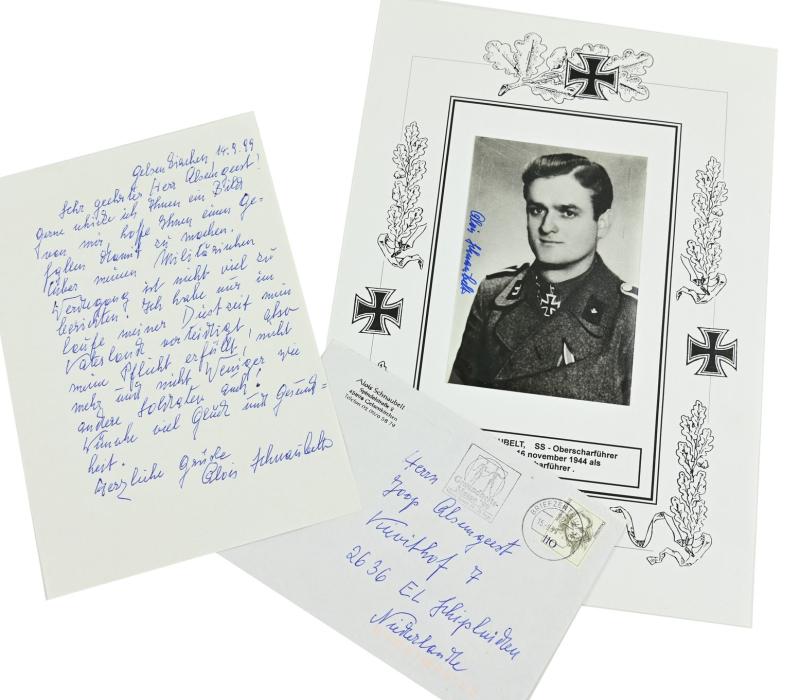 Gelsenkirchen 14.9.99
Sehr geehrter Herr Alsemgeest!
gerne schicke ich Ihnen ein Bild
von mir, hoffe Ihnen einen Ge-
fallen damit zu machen.
Über meinen Militärischen
Werdegang ist nicht viel zu
berichten. Ich habe nur im
laufe meiner Dienstzeit mein
Vaterland verteidigt, also
meine Pflicht erfüllt, nicht
mehr und nicht weniger wie
andere Soldaten auch!
Wünsche viel Glück und Gesund=
heit.
Herzliche Grüße
Alois Schnaubelt
Alois Schnaubelt
UBELT, SS - Oberscharführer
16 november 1944 als
charführer .
Alois Schnaubelt
Gelsenkirchen
BRIEFZEN
110
Herrn
Joop Alsemgeest
7
2636 EL Schipluiden
Niederlande